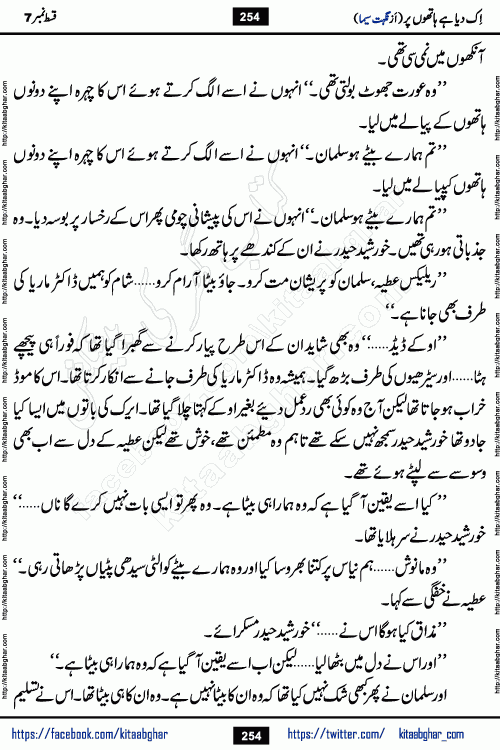 قسط نمبر 7
254
اِک دیا ہے ہاتھوں پر (از نگہت سیما)
آنکھوں میں نمی سی تھی۔
’’وہ عورت جھوٹ بولتی تھی۔‘‘ انہوں نے اسے الگ کرتے ہوئے اس کا چہرہ اپنے دونوں
ہاتھوں کے پیالے میں لیا۔
’’تم ہمارے بیٹے ہو سلمان۔‘‘ انہوں نے اسے الگ کرتے ہوئے اس کا چہرہ اپنے دونوں
ہاتھوں کیپیالے میں لیا۔
’’تم ہمارے بیٹے ہو سلمان۔‘‘ انہوں نے اس کی پیشانی چومی پھر اس کے رخسار پر بوسہ دیا۔ وہ
جذباتی ہو رہی تھیں۔ خورشید حیدر نے ان کے کندھے پر ہاتھ رکھا۔
’’ریلیکس عطیہ، سلمان کو پریشان مت کرو۔ جاؤ بیٹا آرام کرو......شام کو ہمیں ڈاکٹر ماریا کی
طرف بھی جانا ہے۔‘‘
’’اوکے ڈیڈ......‘‘ وہ بھی شاید ان کے اس طرح پیار کرنے سے گھبرا گیا تھا کہ فوراً ہی پیچھے
ہٹا......اور سیڑھیوں کی طرف بڑھ گیا۔ ہمیشہ وہ ڈاکٹر ماریا کی طرف جانے سے انکار کرتا تھا۔ اس کا موڈ
خراب ہو جاتا تھا لیکن آج وہ کوئی بھی ردعمل دیئے بغیر اوکے کہتا چلا گیا تھا۔ ایرک کی باتوں میں ایسا کیا
جادو تھا خورشید حیدر سمجھ نہیں سکے تھے تاہم وہ مطمئن تھے، خوش تھے لیکن عطیہ کے دل سے اب بھی
وسوسے سے لپٹے ہوئے تھے۔
’’کیا اسے یقین آ گیا ہے کہ وہ ہمارا ہی بیٹا ہے۔ وہ پھر تو ایسی بات نہیں کرے گا ناں......‘‘
خورشید حیدر نے سر ہلایا تھا۔
’’وہ مانوش......ہم نیاس پر کتنا بھروسا کیا اور وہ ہمارے بیٹے کو الٹی سیدھی پٹیاں پڑھاتی رہی۔‘‘
عطیہ نے خفگی سے کہا۔
’’مذاق کیا ہوگا اس نے......‘‘ خورشید حیدر مسکرائے۔
’’اور اس نے دل میں بٹھا لیا......لیکن اب اسے یقین آ گیا ہے کہ وہ ہمارا ہی بیٹا ہے۔‘‘
اور سلمان نے پھر کبھی شک نہیں کیا تھا کہ وہ ان کا بیٹا نہیں ہے۔ وہ ان کا ہی بیٹا تھا۔ اس نے تسلیم
http://kitaabghar.com
https://facebook.com/kitaabghar
254
https://twitter.com/ kitaabghar_com